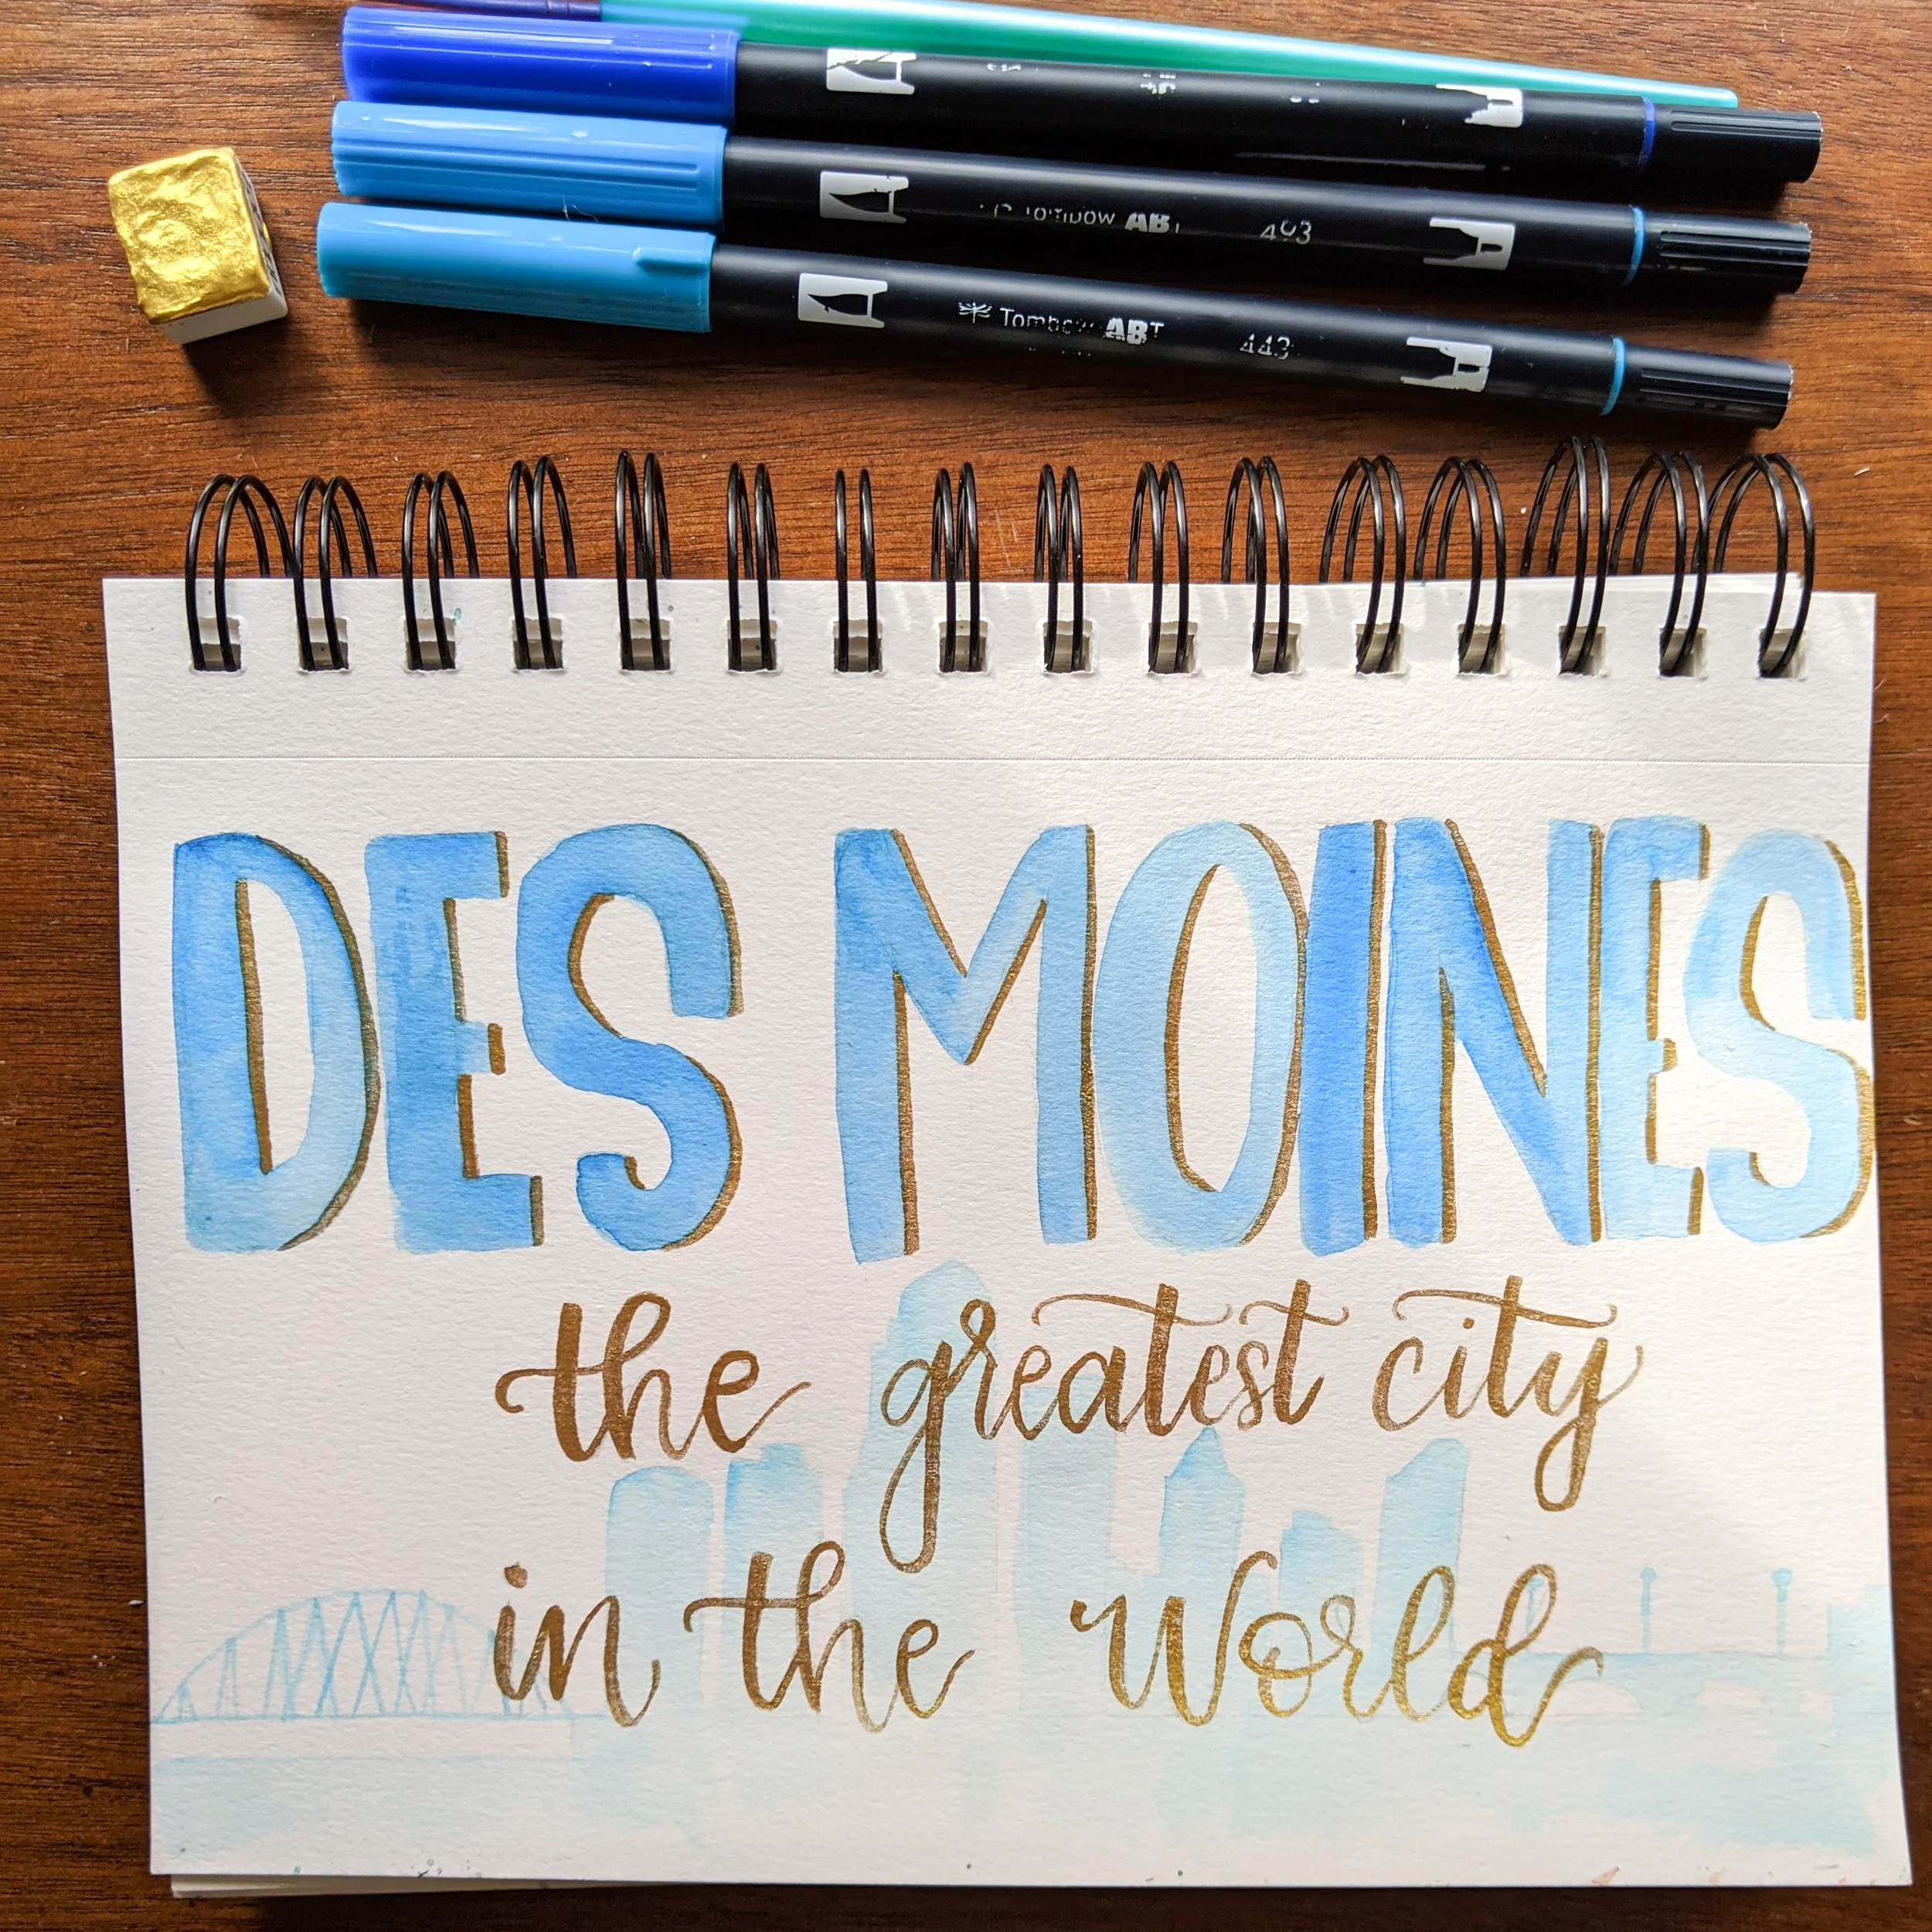 Tombow ABT 493
Tombow ABT 443
DES MOINES
the greatest city
in the world